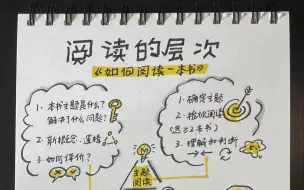 阅读的层次
《如何阅读一本书》
1·本书主题是什么?
解决了什么问题?
2·新概念、逻辑
3·如何评价?
1·确定主题
2·检视阅读
(选≥2本书)
3·理解和判断
主题
阅读